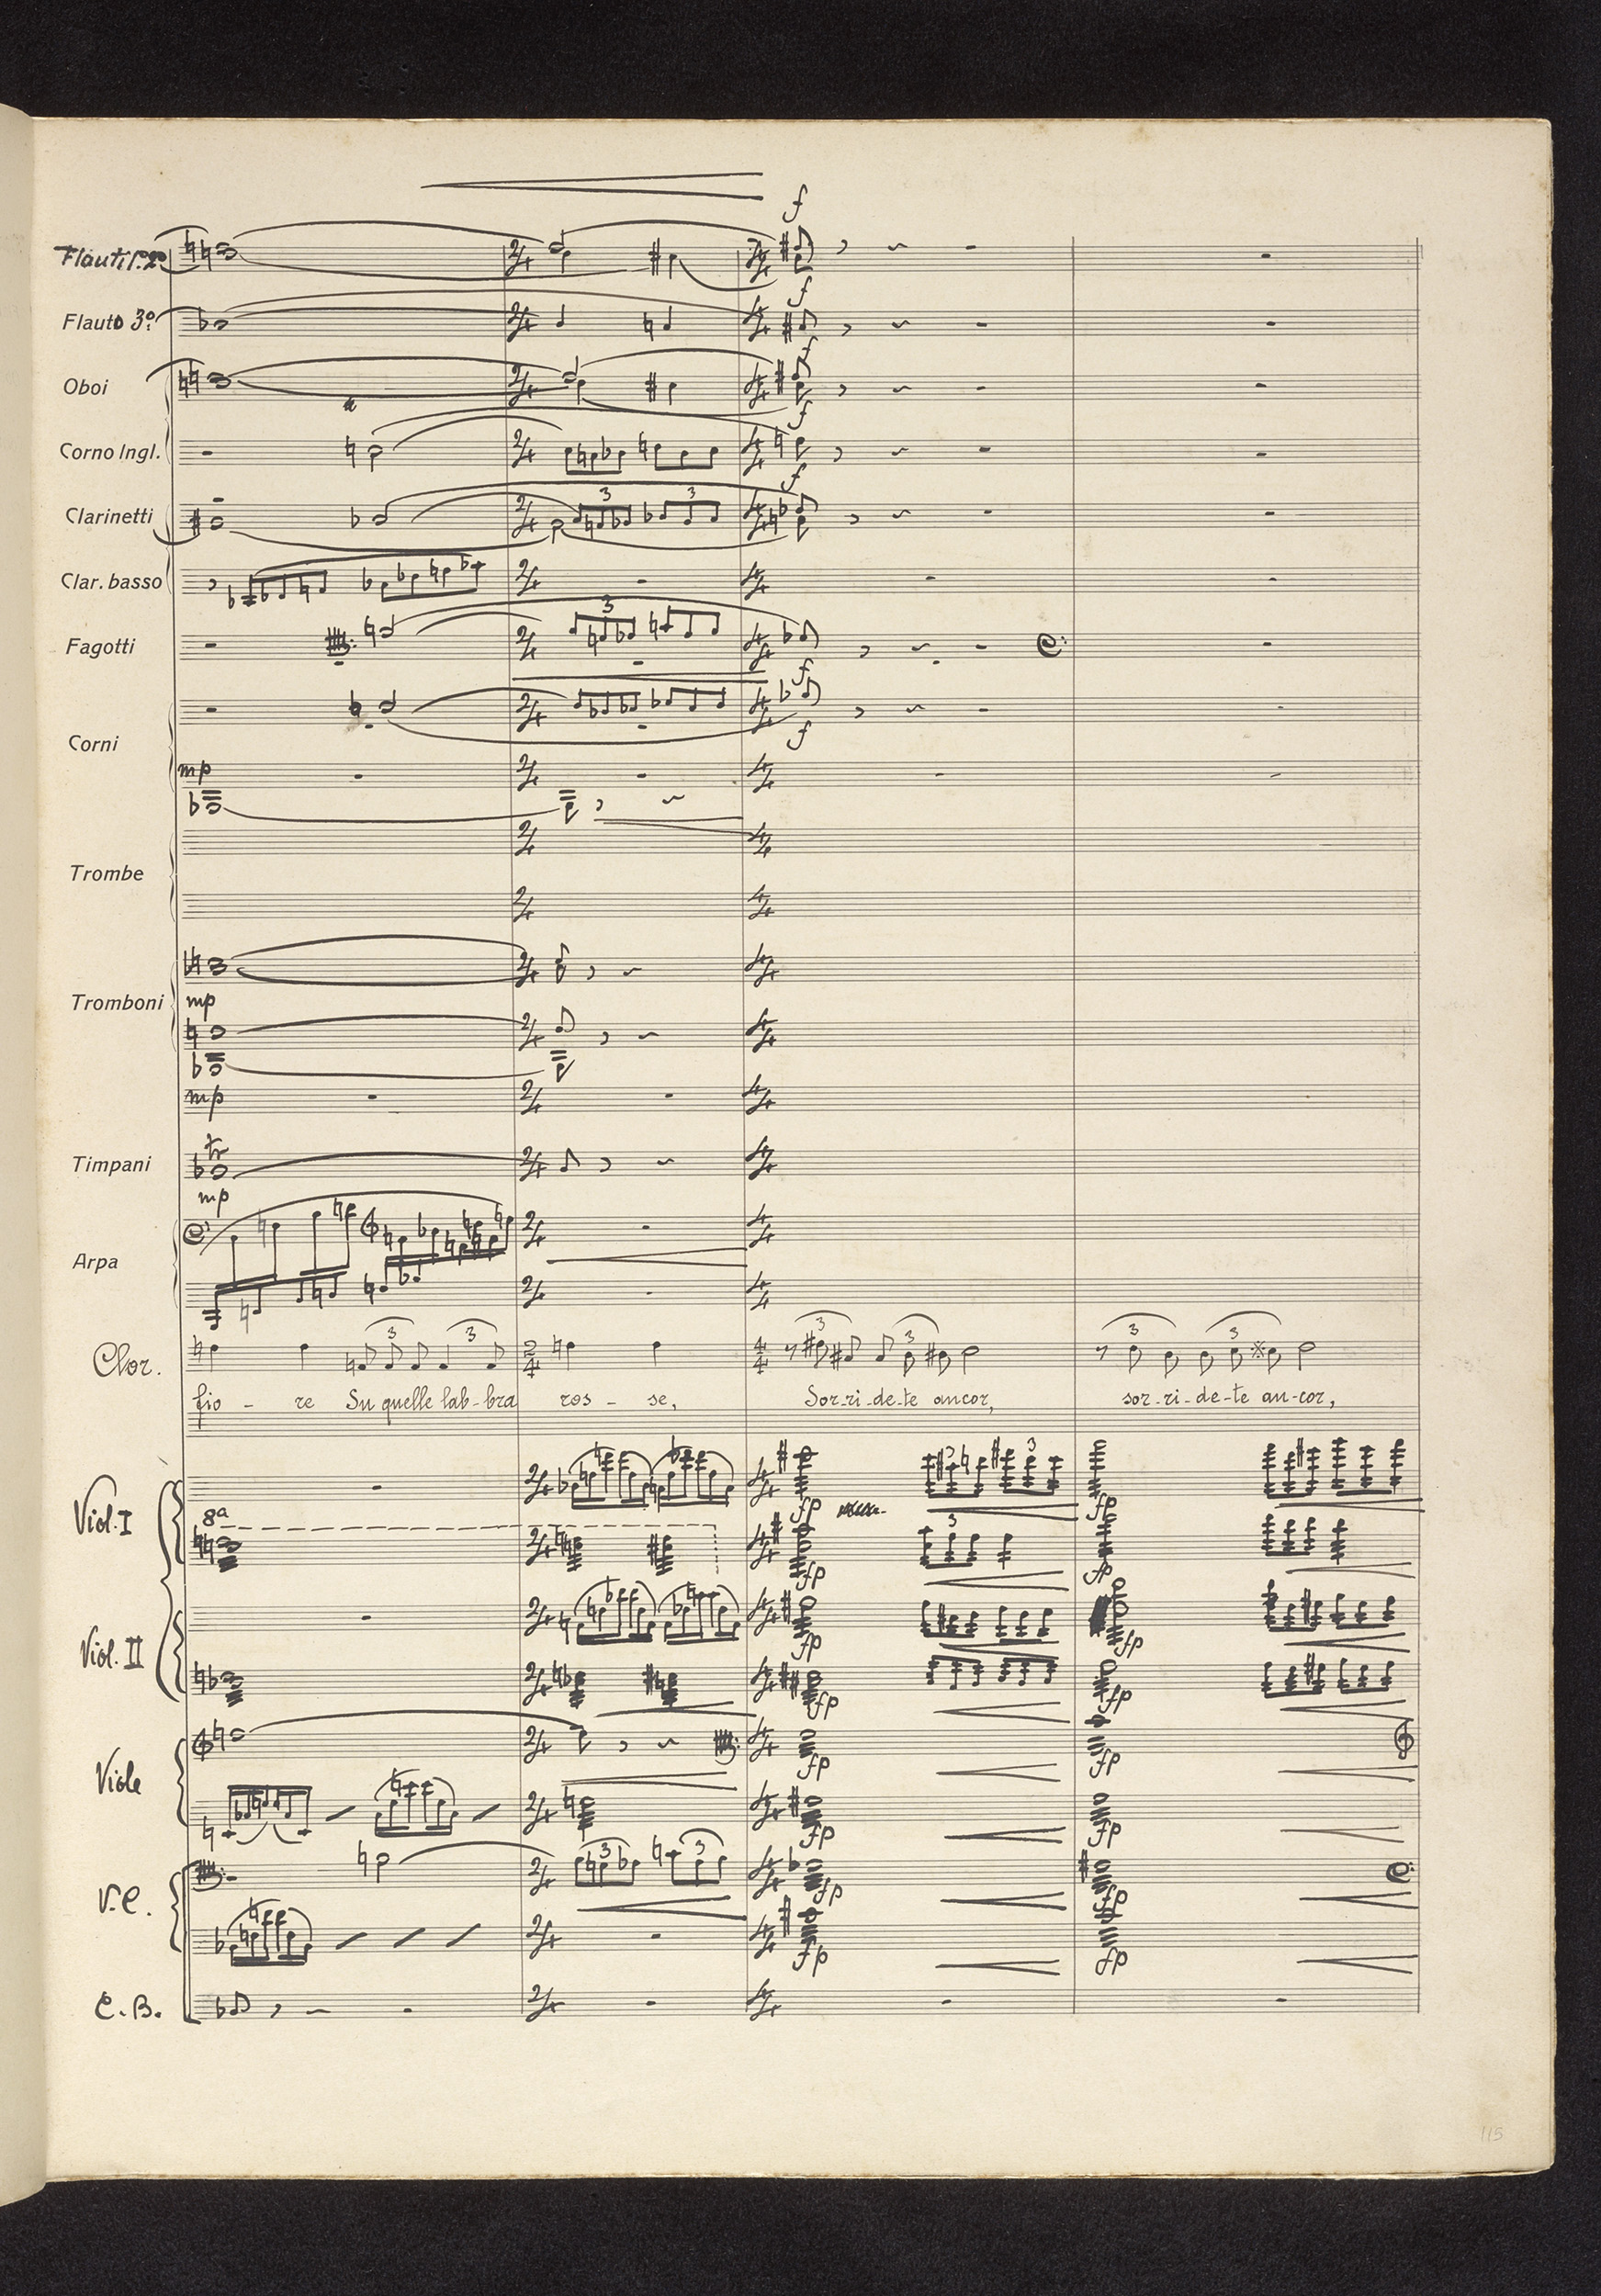 f
Flauti 1º 2º
f
Flauto 3º
f
Oboi
f
Corno Ingl.
f
3 3
Clarinetti
Clar. basso
3
Fagotti
f
Corni
f
mp
Trombe
Tromboni
mp
mp
tr
Timpani
mp
Arpa
3 3 3 3 3 3
Clor.
fio - re Su quelle lab-bra ros - se, Sor-ri-de-te ancor, sor-ri-de-te an-cor,
3 3
Viol. I
fp fp
8a
3
fp fp
Viol. II
fp fp
fp fp
Viole
fp fp
fp fp
3 3
V.C.
fp fp
fp fp
C.B.
115